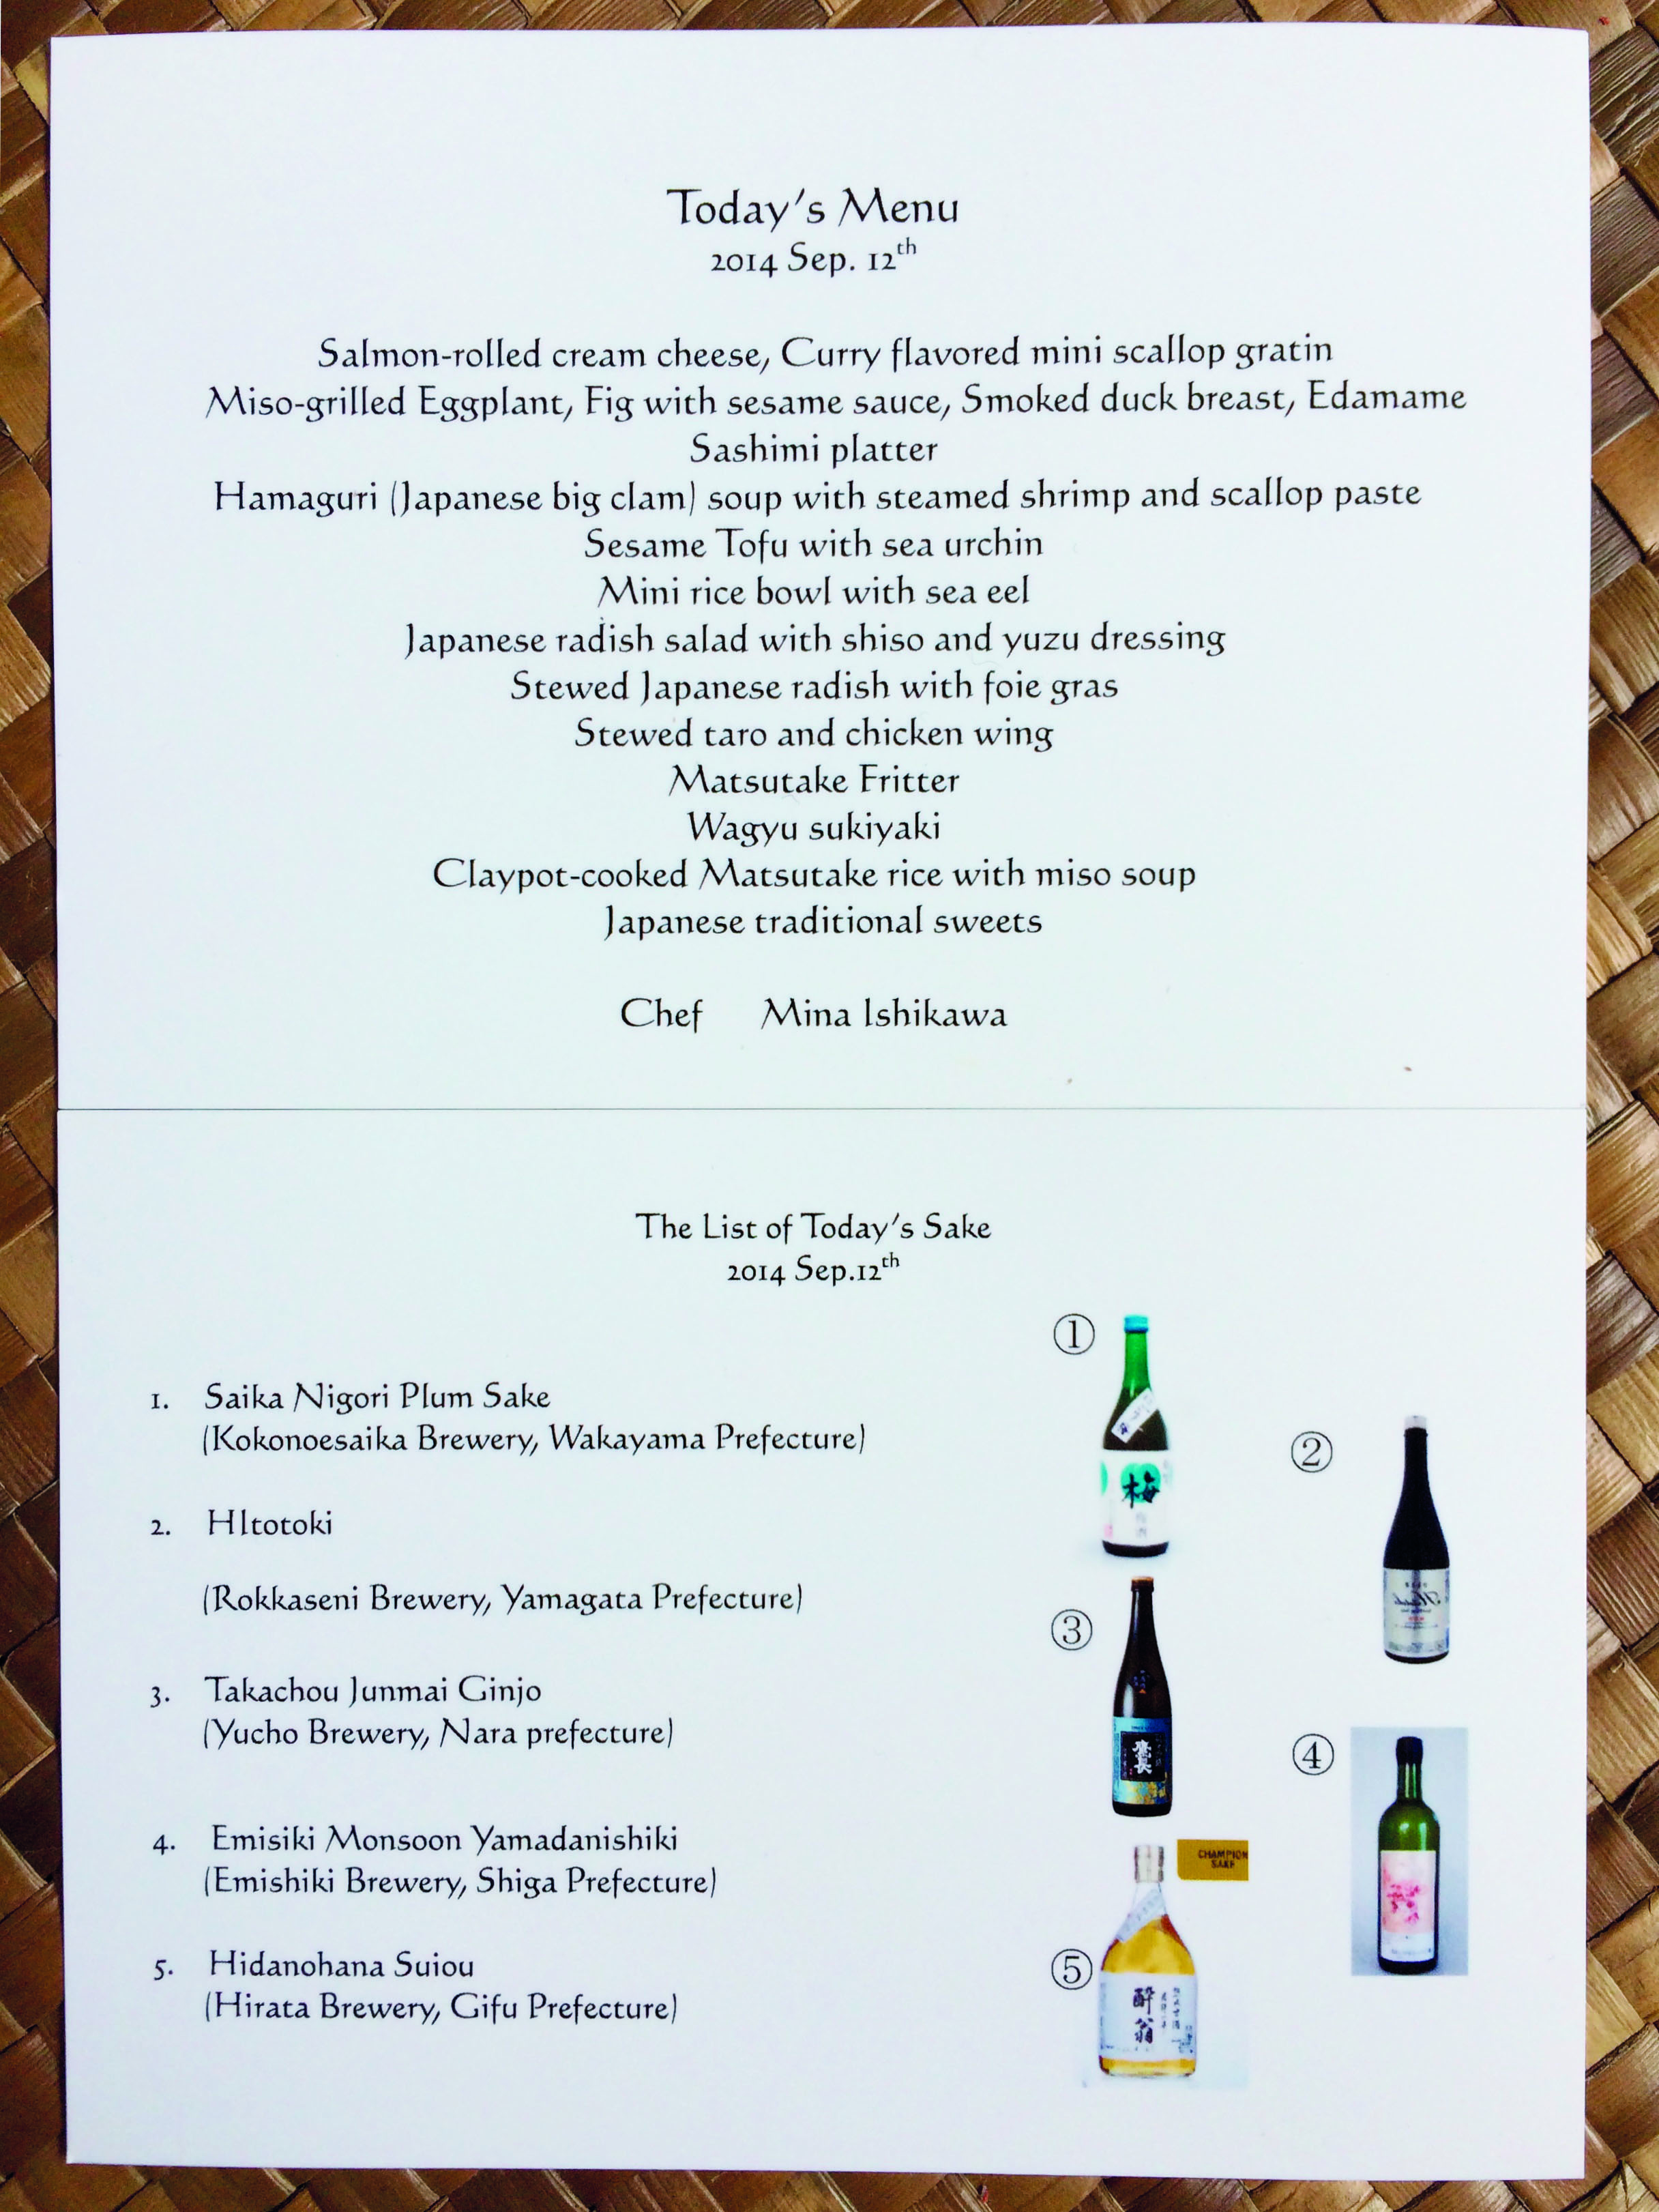 Today's Menu
2014 Sep. 12th
Salmon-rolled cream cheese, Curry flavored mini scallop gratin
Miso-grilled Eggplant, Fig with sesame sauce, Smoked duck breast, Edamame
Sashimi platter
Hamaguri (Japanese big clam) soup with steamed shrimp and scallop paste
Sesame Tofu with sea urchin
Mini rice bowl with sea eel
Japanese radish salad with shiso and yuzu dressing
Stewed Japanese radish with foie gras
Stewed taro and chicken wing
Matsutake Fritter
Wagyu sukiyaki
Claypot-cooked Matsutake rice with miso soup
Japanese traditional sweets
Chef Mina Ishikawa
The List of Today's Sake
2014 Sep.12th
1. Saika Nigori Plum Sake
(Kokonoesaika Brewery, Wakayama Prefecture)
2. HItotoki
(Rokkaseni Brewery, Yamagata Prefecture)
3. Takachou Junmai Ginjo
(Yucho Brewery, Nara prefecture)
4. Emisiki Monsoon Yamadanishiki
(Emishiki Brewery, Shiga Prefecture)
5. Hidanohana Suiou
(Hirata Brewery, Gifu Prefecture)
①
梅
②
③
鷹長
④
CHAMPION
SAKE
⑤
酔翁